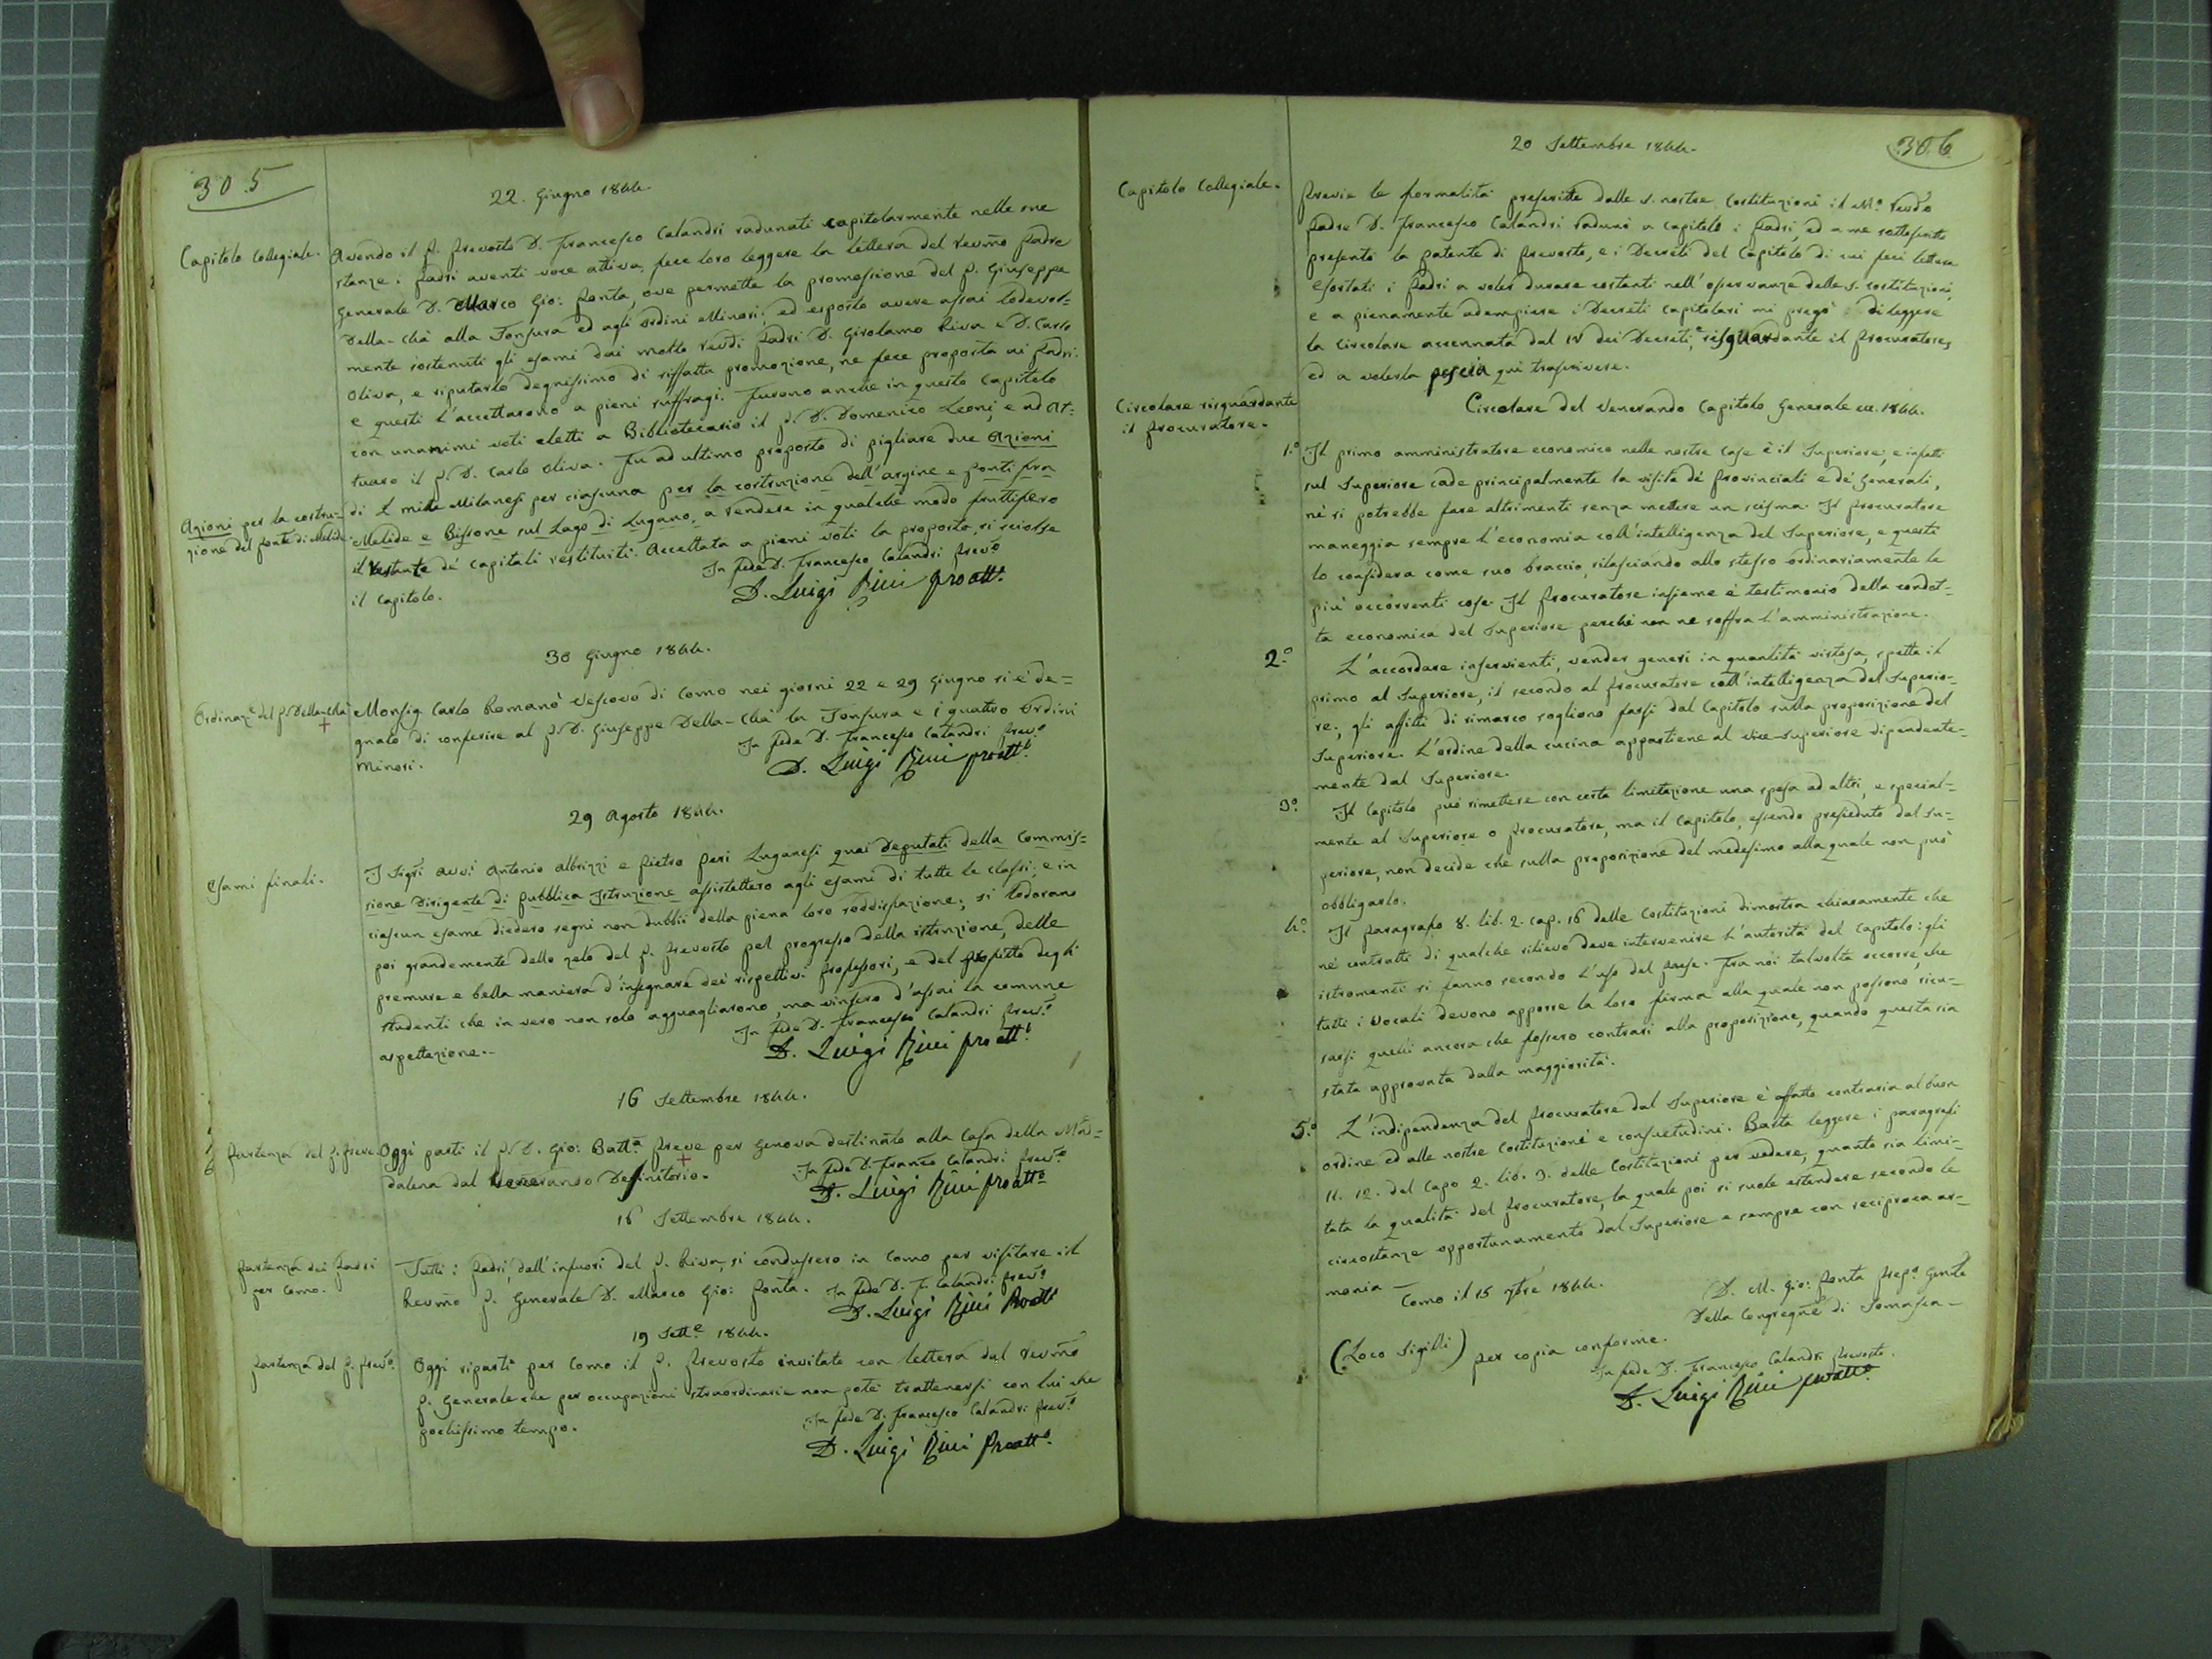 305
22. Giugno 1844.
Capitolo Collegiale.
Avendo il P. Prevosto D. Francesco Calandri radunati capitolarmente nelle sue
stanze i Padri aventi voce attiva, fece loro leggere la lettera del Revmo Padre
Generale D. Marco Gio: Ponta, ove permette la promozione del P. Giuseppe
Della-Chà alla Tonsura ed agli Ordini Minori; ed esposto avere assai lodevol=
mente sostenuti gli esami dai molto Revdi Padri D. Girolamo Riva e D. Carlo
Oliva, e riputarlo degnissimo di siffatta promozione, ne fece proposta ai Padri:
e questi l'accettarono a pieni suffragi. Furono anche in questo Capitolo
con unanimi voti eletti a Bibliotecario il P. D. Domenico Leoni, e ad At=
tuaro il P. D. Carlo Oliva. Fu ad ultimo proposto di pigliare due Azioni
Azioni per la costru=
zione del ponte di Melide.
di L mille Milanesi per ciascuna per la costruzione dell'argine e ponti fra
Melide e Bissone sul Lago di Lugano, a rendere in qualche modo fruttifero
il restante de' capitali restituiti. Accettata a pieni voti la proposta, si sciolse
il Capitolo.
In fede D. Francesco Calandri Prevo
D. Luigi Rini Proatto.
30 Giugno 1844.
Ordinaze del P. Della-Chà
+
Monsig. Carlo Romanò Vescovo di Como nei giorni 22 e 29 Giugno si è de=
gnato di conferire al P. D. Giuseppe Della-Chà la Tonsura e i quattro Ordini
Minori.
In fede D. Francesco Calandri Prevo
D. Luigi Rini proatto.
29 Agosto 1844.
Esami finali.
I Sigri Avvi Antonio Albrizzi e Pietro Peri Luganesi quai Deputati della Commis=
sione Dirigente di Pubblica Istruzione assistettero agli esami di tutte le classi; e in
ciascun esame diedero segni non dubbii della piena loro soddisfazione; si lodorano
poi grandemente dello zelo del P. Prevosto pel progresso della istruzione, delle
premure e bella maniera d'insegnare dei rispettivi Professori, e del profitto degli
studenti che in vero non solo agguagliarono, ma vinsero d'assai la comune
aspettazione.-
In fede D. Francesco Calandri Prevo
D. Luigi Rini proatto.
16 Settembre 1844.
Partenza del P. Preve.
Oggi partì il P. D. Gio: Batta Preve per Genova destinato alla Casa della Mad=
dalena dal Venerando Definitorio.
+
In fede D. Franco Calandri Prevo
D. Luigi Rini Proatto
16 Settembre 1844.
Partenza dei Padri
per Como.
Tutti i Padri, dall'infuori del P. Riva, si condussero in Como per visitare il
Revmo P. Generale D. Marco Gio: Ponta.
In fede D. F. Calandri Prevo
D. Luigi Rini Proatto
19 Sette 1844.
Partenza del P. Prevo.
Oggi ripartì per Como il P. Prevosto invitato con lettera dal Revmo
P. Generale che per occupazioni straordinarie non potè trattenersi con lui che
pochissimo tempo.
In fede D. Francesco Calandri Prevo
D. Luigi Rini Proatto.
306
20 Settembre 1844.
Capitolo Collegiale.
Previe le formalità prescritte dalle S. nostre Costituzioni il Mo. Revdo
Padre D. Francesco Calandri radunò a capitolo i Padri, ed a me sottoscritto
presentò la Patente di Prevosto, e i Decreti del Capitolo di cui feci lettura
Esortati i Padri a voler durare costanti nell'osservanza delle S. costituzioni,
e a pienamente adempiere i Decreti capitolari mi pregò di leggere
la Circolare accennata dal IV dei Decreti, risguardante il Procuratore,
ed a volerla poscia qui trascrivere.
Circolare risguardante
il Procuratore.
Circolare del Venerando Capitolo Generale 1844.
1.o Il primo amministratore economico nelle nostre Case è il Superiore; e infatti
sul Superiore cade principalmente la visita de' Provinciali e de' Generali,
nè si potrebbe fare altrimenti senza mettere un scisma. Il Procuratore
maneggia sempre l'economia coll'intelligenza del Superiore, e questi
lo considera come suo braccio, rilasciando allo stesso ordinariamente le
più occorrenti cose. Il Procuratore insieme è testimonio della condot=
ta economica del Superiore perchè non ne soffra l'amministrazione.
2.o L'accordare inservienti, vender generi in quantità vistosa, spetta il
primo al Superiore, il secondo al Procuratore coll'intelligenza del Superio=
re; gli affitti di rimarco sogliono farsi dal Capitolo sulla proposizione del
Superiore. L'ordine della cucina appartiene al vice-Superiore dipendente=
mente dal Superiore.
3o. Il Capitolo può rimettere con certa limitazione una spesa ad altri, e special=
mente al Superiore o Procuratore, ma il Capitolo, essendo presieduto dal Su=
periore, non decide che sulla proposizione del medesimo alla quale non può
obbligarlo.
4o. Il paragrafo 8. lib. 2. cap. 16 delle Costituzioni dimostra chiaramente che
ne' contratti di qualche rilievo deve intervenire l'autorità del Capitolo: gli
istromenti si fanno secondo l'uso del paese. Fra noi talvolta occorre, che
tutti i Vocali devono apporre la loro firma alla quale non possono ricu=
sarsi quelli ancora che fossero contrari alla proposizione, quando questa sia
stata approvata dalla maggiorità.
5.o L'indipendenza del Procuratore dal Superiore è affatto contraria al buon
ordine ed alle nostre Costituzioni e consuetudini. Basta leggere i paragrafi
11. 12. del Capo 2. lib. 3. delle Costituzioni per vedere, quanto sia limi=
tata la qualità del Procuratore, la quale poi si suole estendere secondo le
circostanze opportunamente dal Superiore e sempre con reciproca ar=
monia -
Como il 15 7bre 1844.
D. M. Gio: Ponta Prepo Gente
Della Congregne di Somasca -
(Loco Sigilli) per copia conforme.
In fede D. Francesco Calandri Prevosto.
D. Luigi Rini proatto.